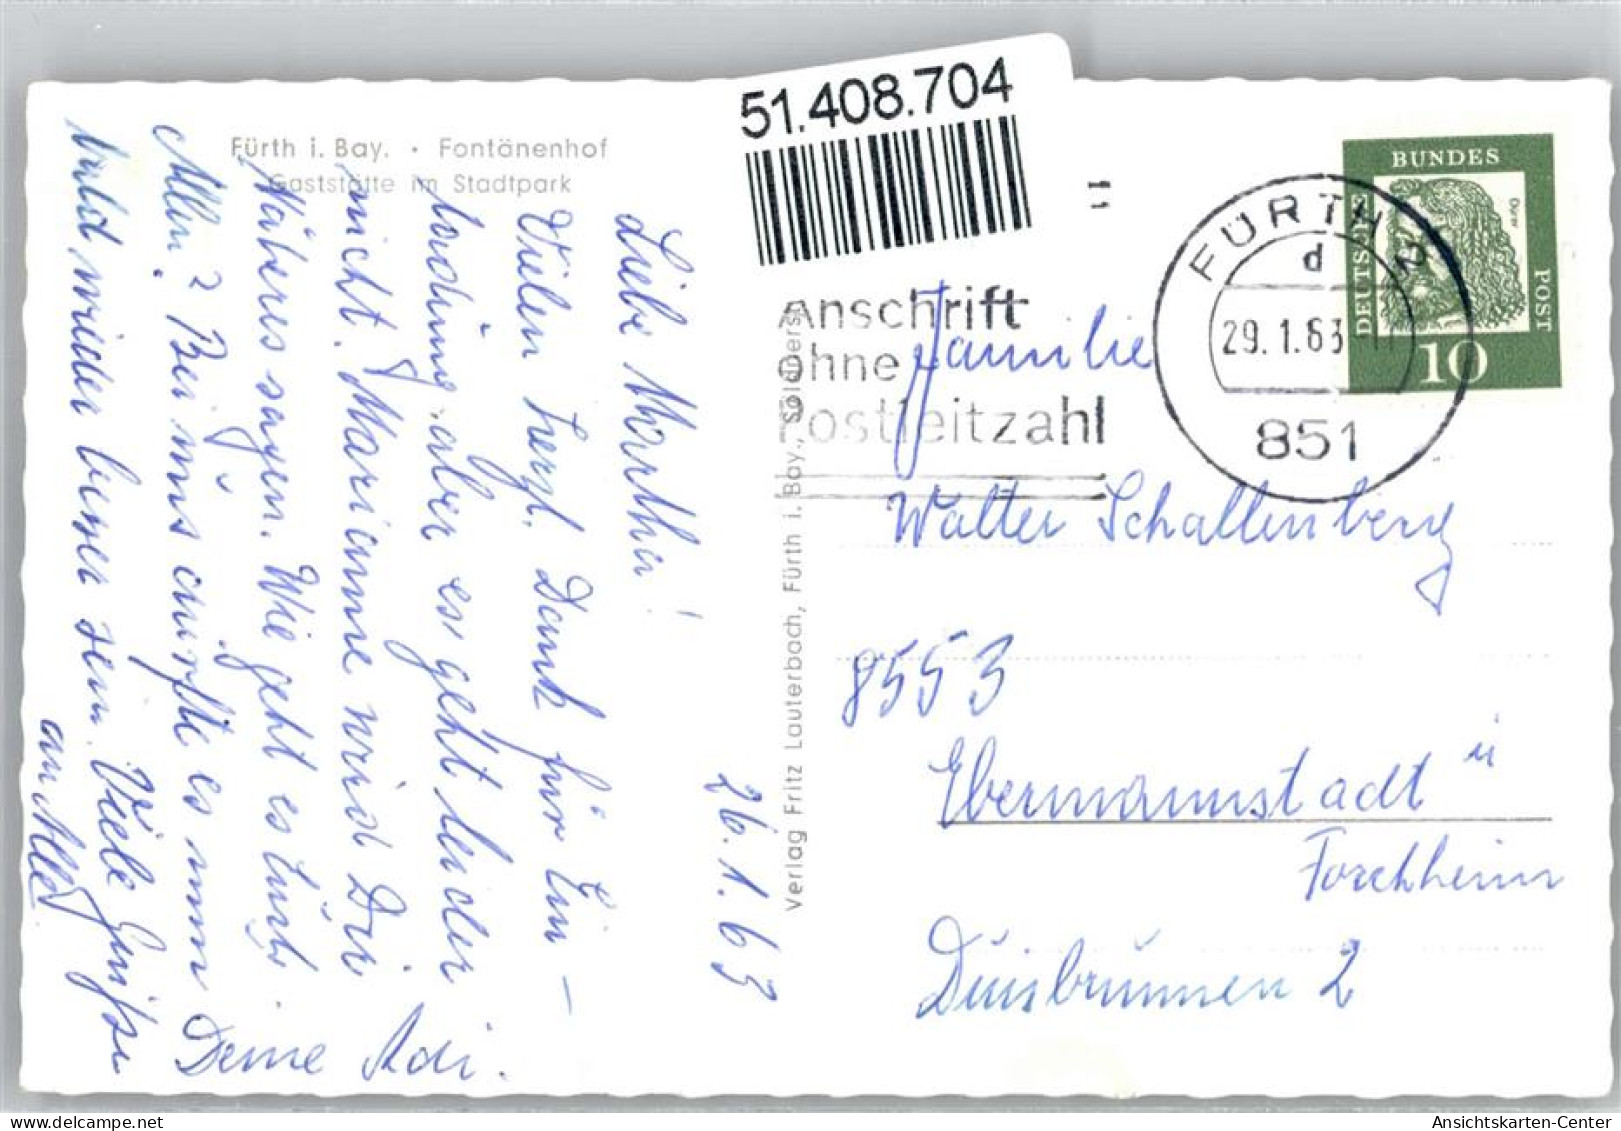 51.408.704
Fürth i. Bay. · Fontänenhof
Gaststätte im Stadtpark
Liebe Martha!
26.1.63
Vielen herzl. Dank für Ein-
ladung aber es geht leider
nicht. Marianne wird Dir
Näheres sagen. Wie geht es Euch
Allen? Bei uns dürfte es nun
bald wieder besser sein. Viele Grüße
an Alle
Deine Adi.
Verlag Fritz Lauterbach, Fürth i. Bay., Soldnerstr.
Anschrift
ohne
Postleitzahl
FÜRTH 2
d
29.1.63-11
851
DEUTSCHE
BUNDES
POST
Dürer
10
Familie
Walter Schallenberg
8553
Ebermannstadt ü
Forchheim
Duisbrunnen 2
Ansichtskarten-Center